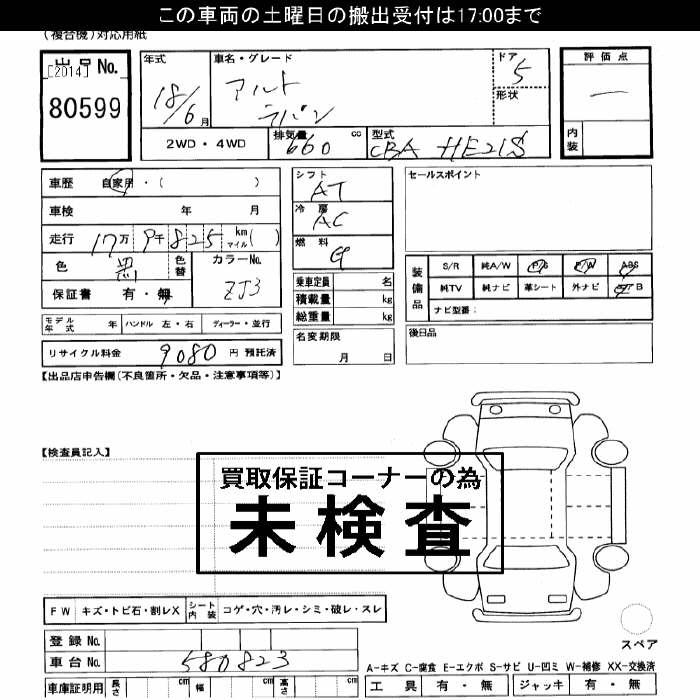 この車両の土曜日の搬出受付は17:00まで
(複合機)対応用紙
出品 No. [2014]
80599
年式 18/6 月
車名・グレード アルト ラパン
ドア 5
形状
評価点 —
内装
2WD・4WD
排気量 660 cc
型式 CBA HE21S
車歴 自家用・( )
車検 年 月
走行 17万 9千 825 km マイル( )
色 黒 色替 カラーNo. ZJ3
保証書 有・無
モデル年式 年 ハンドル 左・右 ディーラー・並行
リサイクル料金 9080 円 預託済
シフト AT
冷房 AC
燃料 G
乗車定員 名
積載量 kg
総重量 kg
名変期限 月 日
セールスポイント
装備品 S/R 純A/W P/S P/W ABS
純TV 純ナビ 革シート 外ナビ エアB
ナビ型番:
後日品
【出品店申告欄(不良箇所・欠品・注意事項等)】
【検査員記入】
買取保証コーナーの為
未検査
FW キズ・トビ石・割レX シート内装 コゲ・穴・汚レ・シミ・破レ・スレ
登録 No.
車台 No. 580823
車庫証明用 長さ cm 幅 cm 高さ cm
スペア
A-キズ C-腐食 E-エクボ S-サビ U-凹ミ W-補修 XX-交換済
工具 有・無 ジャッキ 有・無